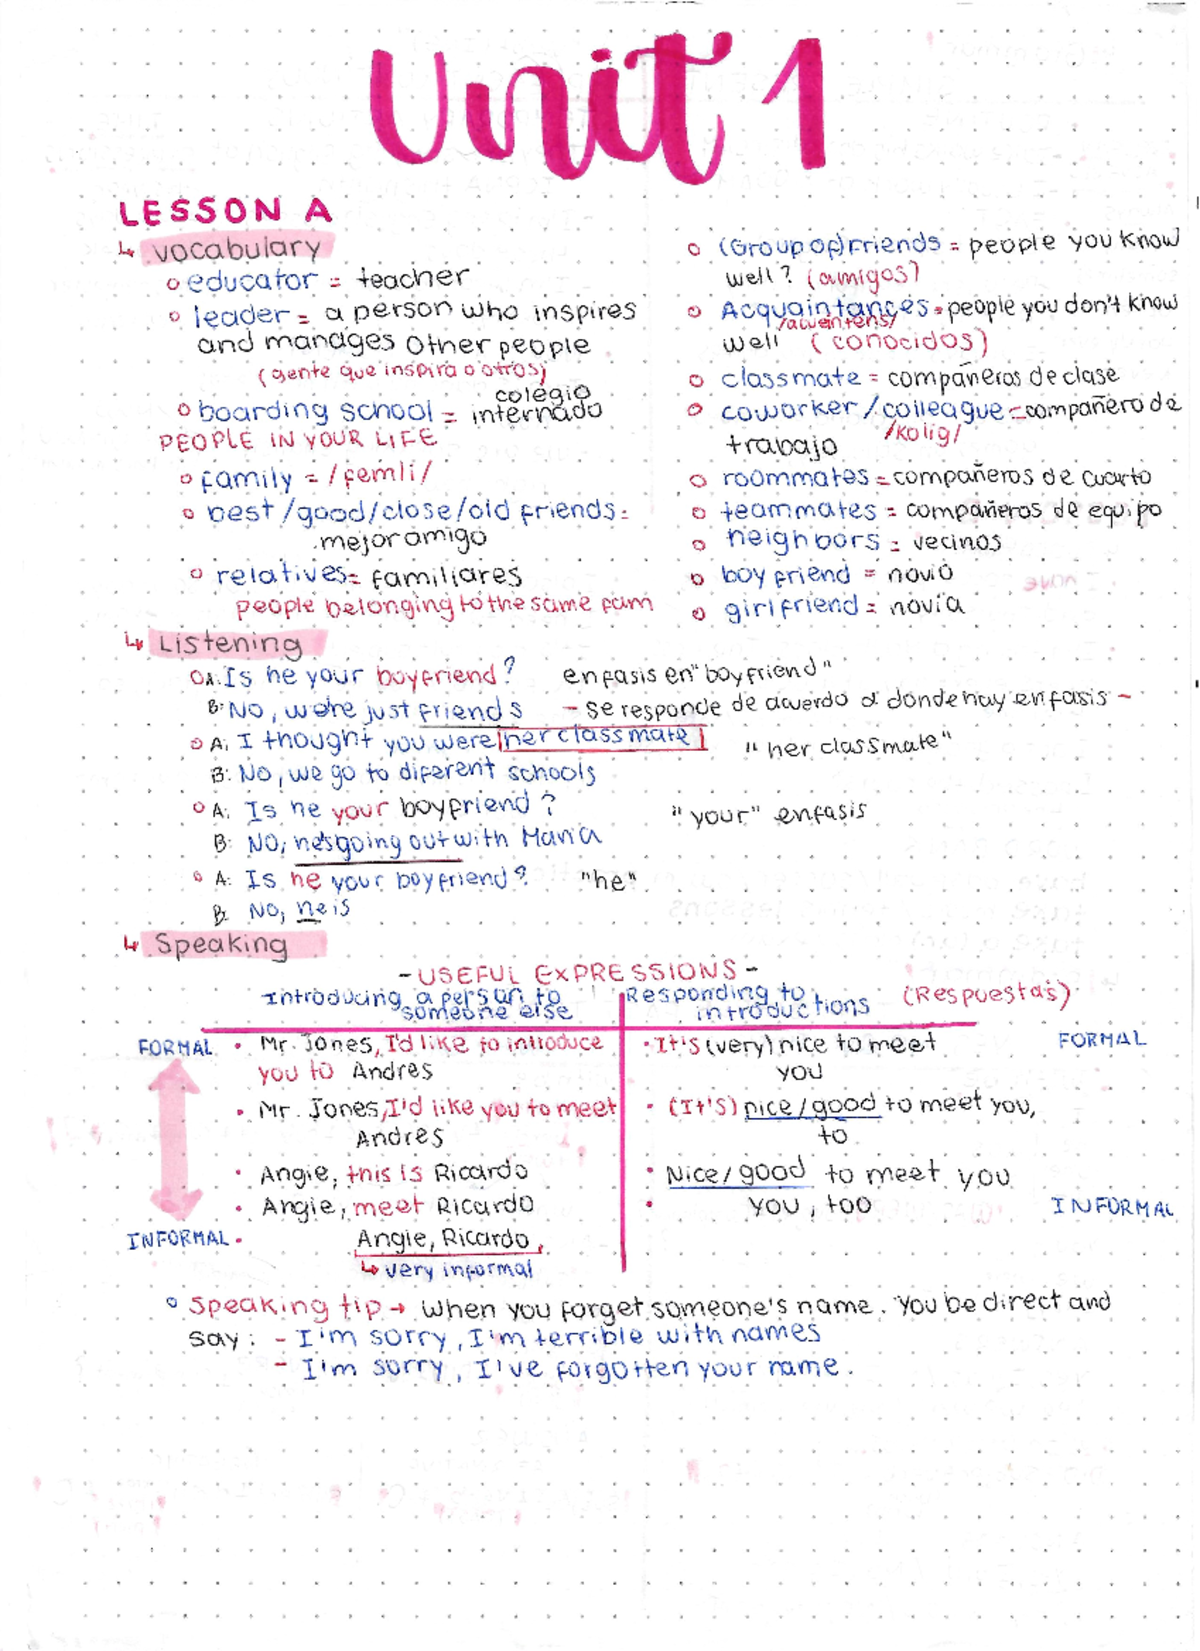 Unit 1
LESSON A
↳ vocabulary
○ educator = teacher
○ leader = a person who inspires
and manages other people
(gente que inspira o otros)
colegio
○ boarding school = internado
PEOPLE IN YOUR LIFE
○ family = /femli/
○ best/good/close/old friends =
mejor amigo
○ relatives = familiares
people belonging to the same fam
○ (Group of) Friends = people you know
well? (amigos)
○ Acquaintances = people you don't know
well (conocidos)
○ classmate = compañeros de clase
○ coworker / colleague = compañero de
/kolig/
trabajo
○ roommates = compañeros de cuarto
○ teammates = compañeros de equipo
○ neighbors = vecinos
○ boyfriend = novio
○ girlfriend = novia
↳ Listening
○ A: Is he your boyfriend? enfasis en "boyfriend"
B: No, we're just friends - se responde de acuerdo a donde hay enfasis -
○ A: I thought you were her classmate "her classmate"
B: No, we go to diferent schools
○ A: Is he your boyfriend? "your" enfasis
B: NO, he's going out with Maria
○ A: Is he your boyfriend? "he"
B: No, he is
↳ Speaking
- USEFUL EXPRESSIONS -
Introducing a person to
someone else
Responding to
introductions
(Respuestas)
FORMAL • Mr. Jones, I'd like to introduce
you to Andres
• Mr. Jones, I'd like you to meet
Andres
• Angie, this is Ricardo
• Angie, meet Ricardo
INFORMAL • Angie, Ricardo,
↳ very informal
• It's (very) nice to meet
you
FORMAL
• (It's) nice/good to meet you,
to
• Nice/good to meet you
• you, too
INFORMAL
○ Speaking tip → when you forget someone's name. You be direct and
say: - I'm sorry, I'm terrible with names
- I'm sorry, I've forgotten your name.